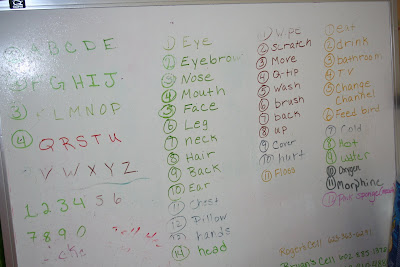 A B C D E
F G H I J
3 L M N O P
4 Q R S T U
V W X Y Z
1 2 3 4 5 6
7 8 9 0
1 Eye
2 Eyebrow
3 Nose
4 Mouth
5 Face
6 Leg
7 neck
8 Hair
9 Back
10 Ear
11 Chest
12 Pillow
13 hands
14 head
1 Wipe
2 Scratch
3 Move
4 Q-tip
5 Wash
6 brush
7 back
8 up
9 Cover
10 hurt
11 Floss
1 Eat
2 drink
3 bathroom
4 TV
5 Change
Channel
6 Feed bird
7 Cold
8 Hot
9 water
10 Oxygen
11 Morphine
12 Pink sponge
Roger's Cell
Cell